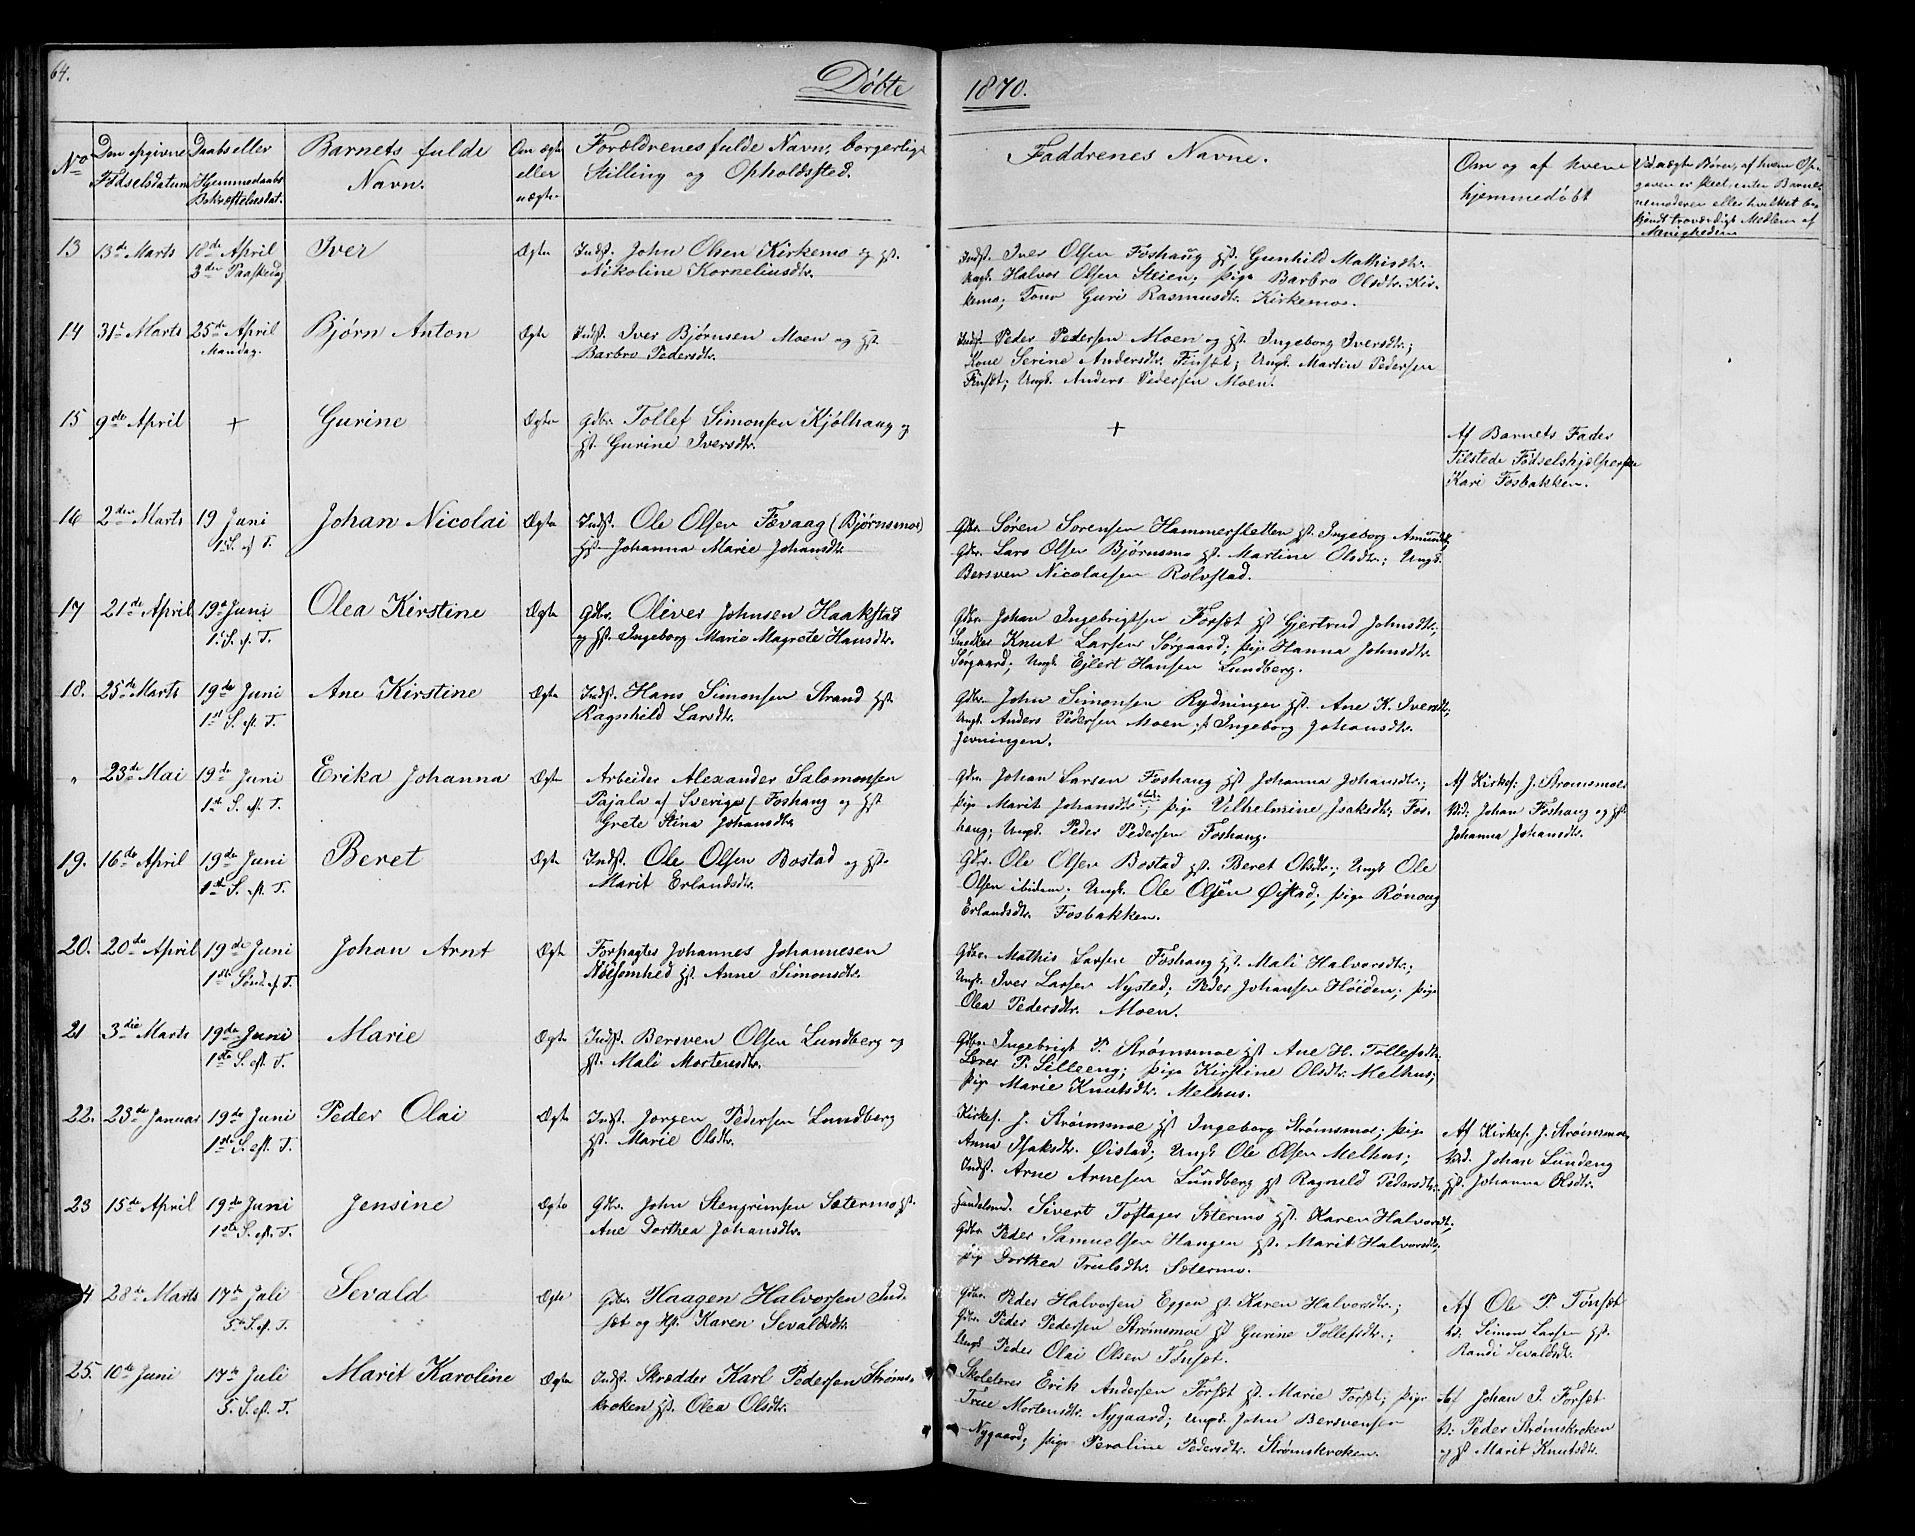 64.
Döbte
1870.
No
Den opgivne Fødselsdatum
Daabs eller Hjemmedaabs Bekræftelsesdat.
Barnets fulde Navn.
Om ægte eller uægte
Forældrenes fulde Navn, borgerlige Stilling og Opholdssted.
Faddrenes Navne.
Om og af hvem hjemmedøbt
Ved uægte Børn, af hvem Opgaven er skeet, enten Barnemoderen eller hvilket bekjendt troværdigt Medlem af Menigheden
13 13de Marts 18de April Iver Ægte Indst. John Olsen Kirkemo og Hst.
2den Paaskedag Nikoline Korneliusdtr.
Indst. Iver Olsen Foshaug Hst. Gunhild Mathisdtr.
Halvor Olsen Steien; Pige Barbro Olsdtr. Kir-
kemo; Guri Rasmusdtr. Kirkemo.
14 31t Marts 25de April Bjørn Anton Ægte Indst. Iver Bjørnsen Moen og Hst.
Mandag. Barbro Pedersdtr.
Indst. Peder Pedersen Moen og Hst. Ingeborg Iversdtr.;
Kone Serine Andersdtr. Fonsæt; Ungk. Martin Pedersen
Ungk. Anders Pedersen Moen.
15 9de April + Gurine Ægte Gdbr. Tollef Simonsen Kjølhaug og
Hst. Gurine Iversdtr.
+
Af Barnets Fader
Tilstede Fødselshjælpersken
Kari Fosbakken.
16 2den Marts 19 Juni Johan Nicolai Ægte Indst. Ole Olsen Fævaag (Bjørnsmoe)
1.S. ef T. Hst. Johanna Marie Johansdtr.
Gdbr. Søren Sørensen Hammersletten Hst. Ingeborg Amundsd.
Gdbr. Lars Olsen Bjørnsmo Hst. Martine Olsdtr.; Ungk.
Bersven Nicolaisen Rolvstad.
17 21de April 19de Juni Olea Kirstine Ægte Gdbr. Oliver Johnsen Haakstad
1.S. e. T. og Hst. Ingeborg Marie Magrete Hansdtr.
Gdbr. Johan Ingebrigtsen Forsæt Hst. Gjertrud Johnsdtr.;
Snedker Knut Larsen Sørgaard; Pige Hanna Johnsdtr.
Sørgaard; Ungk Ejlert Hansen Lundberg.
18. 25de Marts 19de Juni Ane Kirstine Ægte Indst. Hans Simonsen Strand Hst.
1st S. ef. T. Ragnhild Larsdtr.
Gdbr. John Simonsen Rydningen Hst. Ane K. Iversdtr.;
Ungk. Anders Pedersen Moen; P. Ingeborg Johansdtr.
Jevningen.
" 23de Mai 19de Juni Erika Johanna Ægte Arbeider Alexander Salomonsen
1st S. eft. T. Pajala af Sverige / Foshaug og Hst.
Grete Stina Johansdtr.
Gdbr Johan Larsen Foshaug Hst Johanna Johansdtr.;
Pige Marit Johansdtr. ibid.; Pige Vilhelmine Isaksdtr. Fos-
haug; Ungk. Peder Pedersen Foshaug.
Af Kirkes. J. Strømsmoe
Vid. Johan Foshaug og Hst.
Johanna Johansdtr.
19. 16de April 19de Juni Beret Ægte Indst. Ole Olsen Bostad og Hst.
1st S. eft. T. Marit Erlandsdtr.
Gdbr. Ole Olsen Bostad Hst. Beret Olsdtr.; Ungk Ole
Olsen ibidem; Ungk. Ole Olsen Øistad; Pige Rønoug
Erlandsdtr. Fosbakken.
20. 20de April 19de Juni Johan Arnt Ægte Forpagter Johannes Johannesen
1ste Sønd. ef T. Nøisomhed Hst. Anne Simonsdtr.
Gdbr. Mathis Larsen Foshaug Hst. Mali Halvorsdtr.;
Ungk. Iver Larsen Nysted; Peder Johansen Høiden; Pige
Olea Pedersdtr. Moen.
21 3die Marts 19de Juni Marie Ægte Indst. Bersven Olsen Lundberg og
1ste S. eft. T. Hst. Mali Mortensdtr.
Gdbr. Ingebrigt P. Strømsmoe Hst Ane H. Tollefsdtr.
Lærer P. Lilleeng; Pige Kirstine Olsdtr. Melhus;
Pige Marie Knutsdtr. Melhus.
22. 23de Januar 19de Juni Peder Olai Ægte Indst. Jørgen Pedersen Lundberg
1ste S. eft. T. Hst. Marie Olsdtr.
Kirkes. J. Strømsmoe Hst Ingeborg Strømsmoe; Pige
Anna Isaksdtr. Øistad; Ungk Ole Olsen Melhus;
Indst. Arne Arnesen Lundberg Hst Ragnild Pedersdtr.
Af Kirkes. J. Strømsmoe
Vid. Johan Lundeng
Hst. Johanna Olsdtr.
23 15de April 19de Juni Jensine Ægte Gdbr. John Stengrimsen Sætermo Hst.
1ste S. eft. T. Ane Dorthea Johansdtr.
Handelsmd. Sivert Toftager Sætermo Hst. Karen Halvorsdtr.
Gdbr. Peder Samuelsen Haugen Hst. Marit Halvorsdtr.
Pige Dorthea Trulsdtr. Sætermo.
4 28de Marts 17de Juli Sevald Ægte Gdbr. Haagen Halvorsen Ind-
5te S. eft. T. sæt og Hst. Karen Sevaldsdtr.
Gdbr. Peder Halvorsen Eggen Hst. Karen Halvorsdtr.;
Gdbr. Peder Pedersen Strømsmoe Hst Gurine Tollefsdtr.;
Ungk Peder Olai Olsen Fonsæt.
Af Ole P. Fonsæt
Vd. Simon Larsen Hst.
Randi Sevaldsdtr.
25. 10de Juni 17de Juli Marit Karoline Ægte Indst. Skrædder Karl Pedersen Strøms-
5. S. eft. T. kroken Hst. Olea Olsdtr.
Skolelærer Erik Andersen Forsæt Hst. Marie Forsæt; Pige
Mortensdtr. Nygaard; Ungk. John Bersvensen
Nygaard; Pige Peroline Pedersdtr. Strømskroken.
Af Johan I. Forsæt
Vd. Peder Strømskroken
og Hst Marit Knutsdtr.